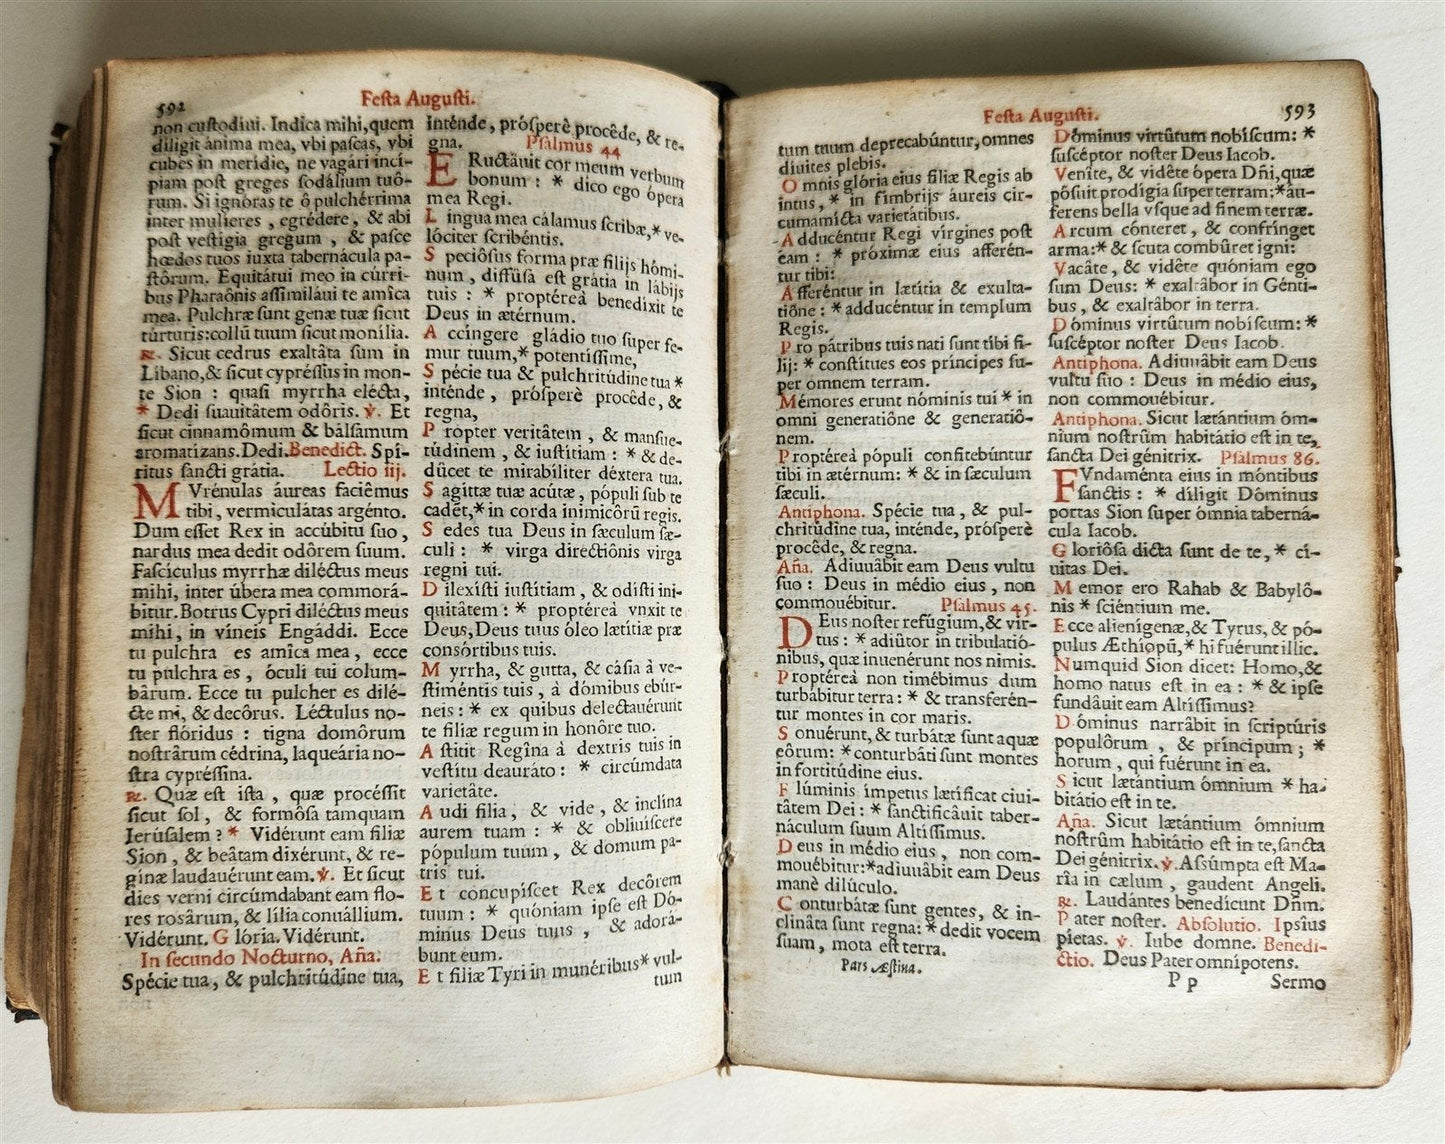 592
Festa Augusti.
non custodiui. Indica mihi, quem
diligit ánima mea, vbi pascas, vbi
cubes in merídie, ne vagári incí-
piam post greges sodálium tuô-
rum. Si ignóras te ô pulchérrima
inter mulíeres, egrédere, & abi
post vestígia gregum, & pasce
hœdos tuos iuxta tabernácula pa-
stôrum. Equitátui meo in cúrri-
bus Pharaônis assimiláui te amîca
mea. Pulchræ sunt genæ tuæ sicut
túrturis: collũ tuum sicut monília.
℟. Sicut cedrus exaltâta sum in
Líbano, & sicut cypréssus in mon-
te Sion : quasi myrrha elécta,
* Dedi suauitâtem odôris. ℣. Et
sicut cinnamômum & bálsamum
aromatízans. Dedi. Benedict. Spí-
ritus sancti grátia. Lectio iij.
MVrénulas áureas faciêmus
tibi, vermiculátas argénto.
Dum esset Rex in accúbitu suo,
nardus mea dedit odôrem suum.
Fascículus myrrhæ diléctus meus
mihi, inter úbera mea commorá-
bitur. Botrus Cypri diléctus meus
mihi, in víneis Engáddi. Ecce
tu pulchra es amîca mea, ecce
tu pulchra es, óculi tui colum-
bârum. Ecce tu pulcher es dilé-
cte mi, & decôrus. Léctulus no-
ster flóridus : tigna domôrum
nostrârum cédrina, laqueária no-
stra cypréssina.
℟. Quæ est ista, quæ procéssit
sicut sol, & formôsa tamquam
Ierúsalem? * Vidérunt eam filiæ
Sion, & beâtam dixérunt, & re-
gínæ laudauérunt eam. ℣. Et sicut
dies verni circúmdabant eam flo-
res rosârum, & lília conuállium.
Vidérunt. Glória. Vidérunt.
In secundo Nocturno, Aña.
Spécie tua, & pulchritúdine tua,
inténde, próspere procêde, & re-
gna. Psalmus 44
ERuctâuit cor meum verbum
bonum : * dico ego ópera
mea Regi.
Lingua mea cálamus scribæ, * ve-
lóciter scribéntis.
Speciôsus forma præ fílijs hómi-
num, diffûsa est grátia in lábijs
tuis : * proptéreà benedíxit te
Deus in ætérnum.
Accíngere gládio tuo super fe-
mur tuum, * potentíssime,
Spécie tua & pulchritúdine tua *
inténde, próspere procêde, &
regna,
Propter veritâtem, & mansue-
túdinem, & iustítiam : * & de-
dúcet te mirabíliter déxtera tua.
Sagíttæ tuæ acútæ, pópuli sub te
cadet, * in corda inimicórũ regis.
Sedes tua Deus in sæculum sæ-
culi : * virga directiônis virga
regni tui.
Dilexísti iustítiam, & odísti ini-
quitâtem : * proptéreà vnxit te
Deus, Deus tuus óleo lætítiæ præ
consórtibus tuis.
Myrrha, & gutta, & cásia à ve-
stiméntis tuis, à dómibus ebúr-
neis : * ex quibus delectauérunt
te fíliæ regum in honôre tuo.
Astitit Regîna à dextris tuis in
vestítu deauráto : * circúmdata
varietâte.
Audi filia, & vide, & inclína
aurem tuam : * & obliuíscere
pópulum tuum, & domum pa-
tris tui.
Et concupíscet Rex decôrem
tuum : * quóniam ipse est Dó-
minus Deus tuus, & adorá-
bunt eum.
Et fíliæ Tyri in munéribus * vul-
tum
Festa Augusti.
593
tum tuum deprecabúntur, omnes
díuites plebis.
Omnis glória eius filiæ Regis ab
intus, * in fímbrijs áureis cir-
cumamícta varietátibus.
Adducéntur Regi vírgines post
eam : * próximæ eius afferén-
tur tibi:
Afferéntur in lætítia & exulta-
tiône : * adducéntur in templum
Regis.
Pro pátribus tuis nati sunt tibi fí-
lij: * constítues eos príncipes su-
per omnem terram.
Mémores erunt nóminis tui * in
omni generatiône & generatiô-
nem.
Proptéreà pópuli confitebúntur
tibi in ætérnum: * & in sæculum
sæculi.
Antiphona. Spécie tua, & pul-
chritúdine tua, inténde, próspere
procêde, & regna.
Aña. Adiuuâbit eam Deus vultu
suo : Deus in médio eius, non
commouébitur. Psalmus 45.
DEus noster refúgium, & vir-
tus : * adiûtor in tribulatió-
nibus, quæ inuenérunt nos nimis.
Proptéreà non timébimus dum
turbábitur terra : * & transferén-
tur montes in cor maris.
Sonuérunt, & turbâtæ sunt aquæ
eôrum: * conturbáti sunt montes
in fortitúdine eius.
Flúminis ímpetus lætíficat ciui-
tâtem Dei : * sanctificâuit taber-
náculum suum Altíssimus.
Deus in médio eius, non com-
mouébitur: * adiuuâbit eam Deus
manè dilúculo.
Conturbátæ sunt gentes, & in-
clinâta sunt regna: * dedit vocem
suam, mota est terra.
Pars Æstiua.
Dóminus virtûtum nobíscum: *
suscéptor noster Deus Iacob.
Venîte, & vidête ópera Dñi, quæ
pósuit prodígia super terram: * áu-
ferens bella vsque ad finem terræ.
Arcum cónteret, & confrínget
arma: * & scuta combûret igni:
Vacâte, & vidête quóniam ego
sum Deus: * exaltâbor in Génti-
bus, & exaltâbor in terra.
Dóminus virtûtum nobíscum: *
suscéptor noster Deus Iacob.
Antiphona. Adiuuâbit eam Deus
vultu suo : Deus in médio eius,
non commouébitur.
Antiphona. Sicut lætántium óm-
nium nostrûm habitátio est in te,
sancta Dei génitrix. Psalmus 86.
FVndaménta eius in móntibus
sanctis : * díligit Dóminus
portas Sion super ómnia taberná-
cula Iacob.
Gloriôsa dicta sunt de te, * cí-
uitas Dei.
Memor ero Rahab & Babylô-
nis * sciéntium me.
Ecce alienígenæ, & Tyrus, & pó-
pulus Æthiopũ, * hi fuérunt illic.
Numquid Sion dicet: Homo, &
homo natus est in ea : * & ipse
fundâuit eam Altíssimus?
Dóminus narrâbit in scriptúris
populôrum, & príncipum; *
horum, qui fuérunt in ea.
Sicut lætántium ómnium * ha-
bitátio est in te.
Aña. Sicut lætántium ómnium
nostrûm habitátio est in te, sancta
Dei génitrix. ℣. Assúmpta est Ma-
ría in cælum, gaudent Angeli.
℟. Laudántes benedícunt Dñm.
Pater noster. Absolutio. Ipsíus
píetas. ℣. Iube domne. Benedi-
ctio. Deus Pater omnípotens.
Pp Sermo